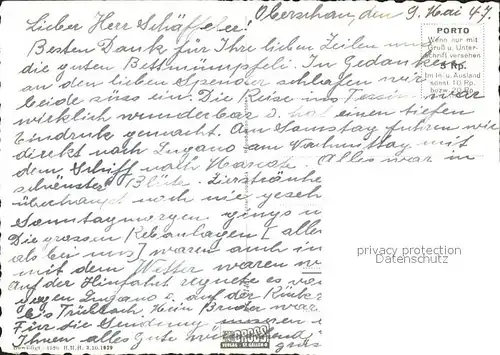 Oberschan, den 9. Mai 47.
Lieber Herr Schäffeler!
Besten Dank für Ihre lieben Zeilen und
die guten Bettmümpfeli. In Gedanken
an den lieben Spender schlafen wir
beide süss ein. Die Reise ins Tessin war
wirklich wunderbar u. hat einen tiefen
Eindruck gemacht. Am Samstag fuhren wir
direkt nach Lugano am Nachmittag mit
dem Schiff nach Alles war in
schönster Blüte. Ziersträucher
überhaupt noch nie geseh
Sonntagmorgen gings
Die grossen Rebanlagen [ aller
als bei uns] waren auch in
mit dem Wetter waren
Auf der Hinfahrt regnete es
gegen Lugano u. auf der Rückr
bis Trübbach. Mein Bruder war
Für die Sendung
Ihnen alles gute
PORTO
Wenn nur mit
Gruß u. Unter-
schrift versehen
5 Rp.
Im In. u. Ausland
sonst 10 Rp.
bzw. 20 Rp.
privacy protection
Datenschutz
GROSS
ST. GALLEN